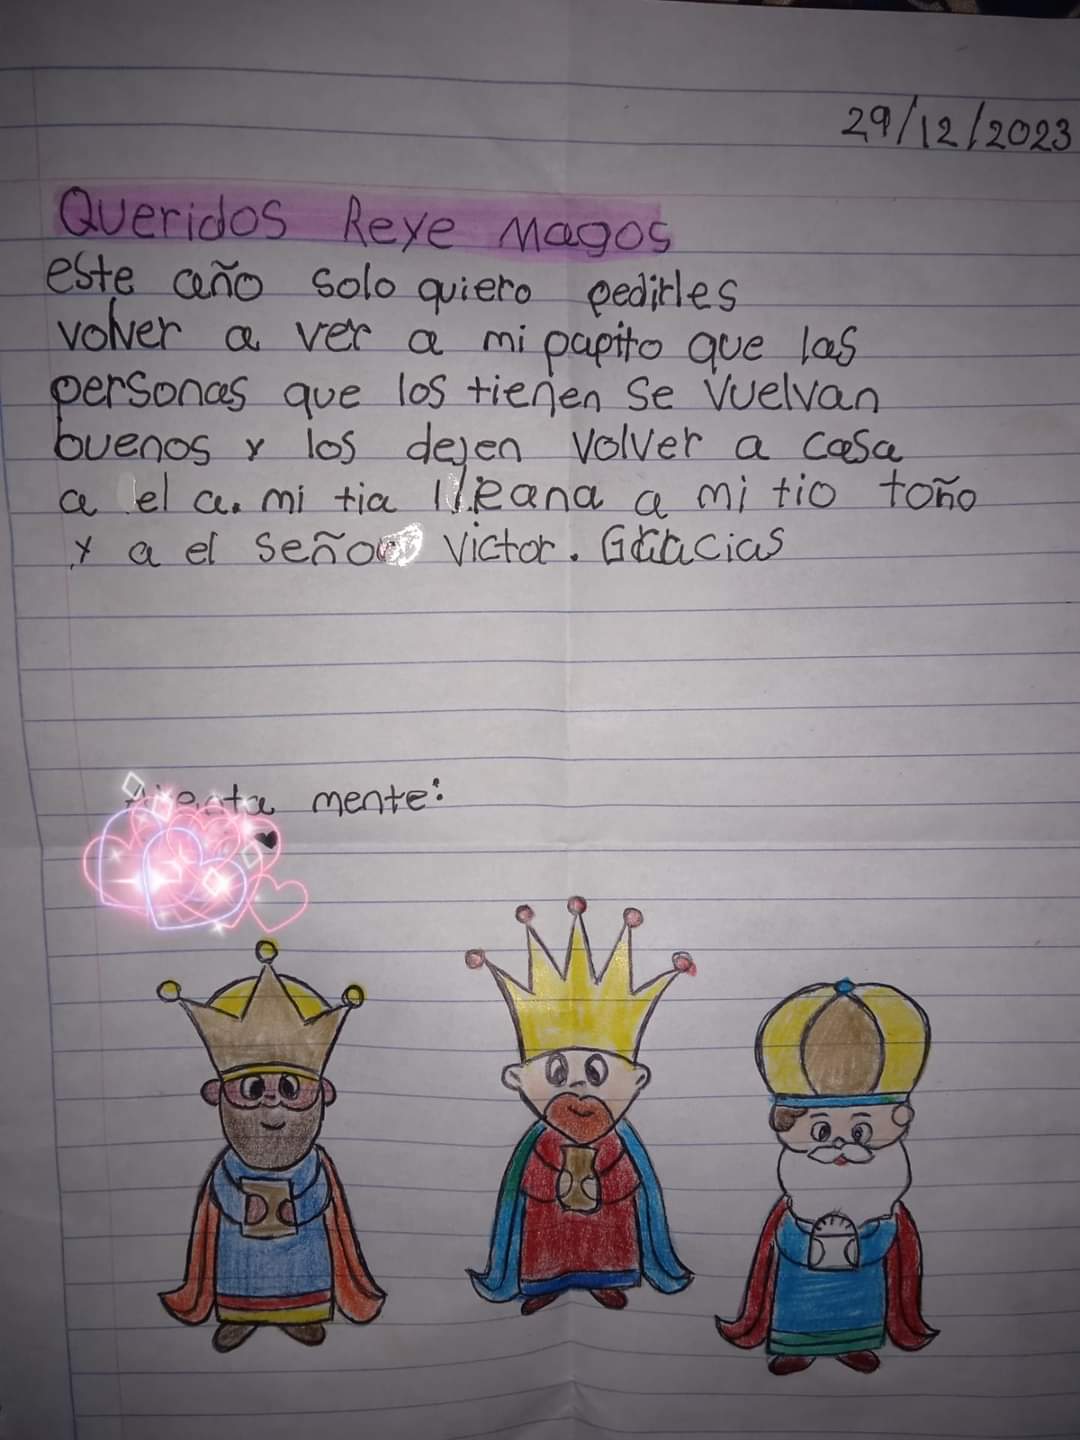 29/12/2023
Queridos Reye Magos
este año solo quiero pedirles
volver a ver a mi papito que las
personas que los tienen se vuelvan
buenos y los dejen volver a casa
a el a. mi tia Ileana a mi tio toño
y a el señor Victor. Gracias
mente: